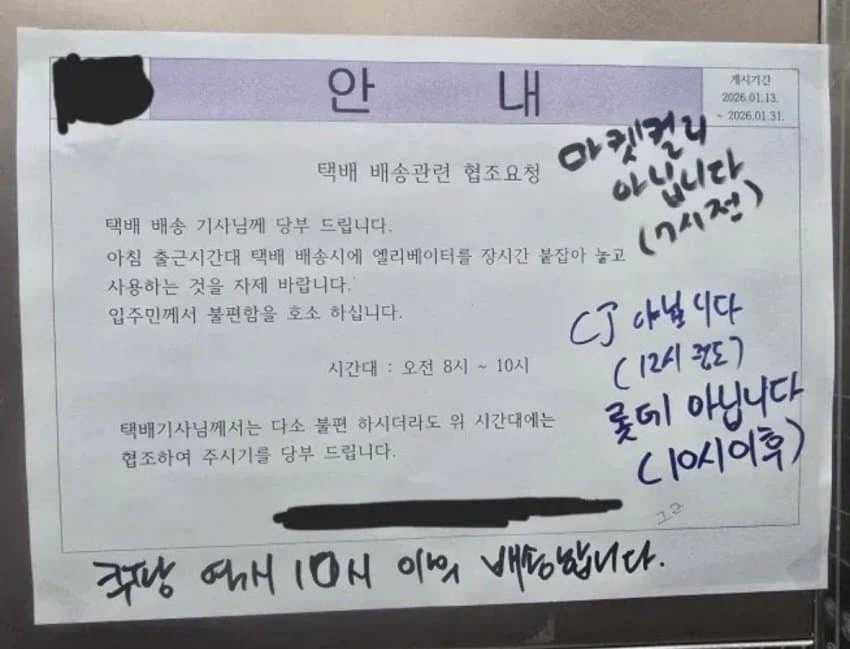 안 내
게시기간
2026.01.13.
~ 2026.01.31.
택배 배송관련 협조요청
택배 배송 기사님께 당부 드립니다.
아침 출근시간대 택배 배송시에 엘리베이터를 장시간 붙잡아 놓고
사용하는 것을 자제 바랍니다.
입주민께서 불편함을 호소 하십니다.
시간대 : 오전 8시 ~ 10시
택배기사님께서는 다소 불편 하시더라도 위 시간대에는
협조하여 주시기를 당부 드립니다.
마켓컬리
아닙니다
(7시전)
CJ 아닙니다
(12시 정도)
롯데 아닙니다
(10시이후)
ㅋㅋ
쿠팡 역시 10시 이외 배송합니다.